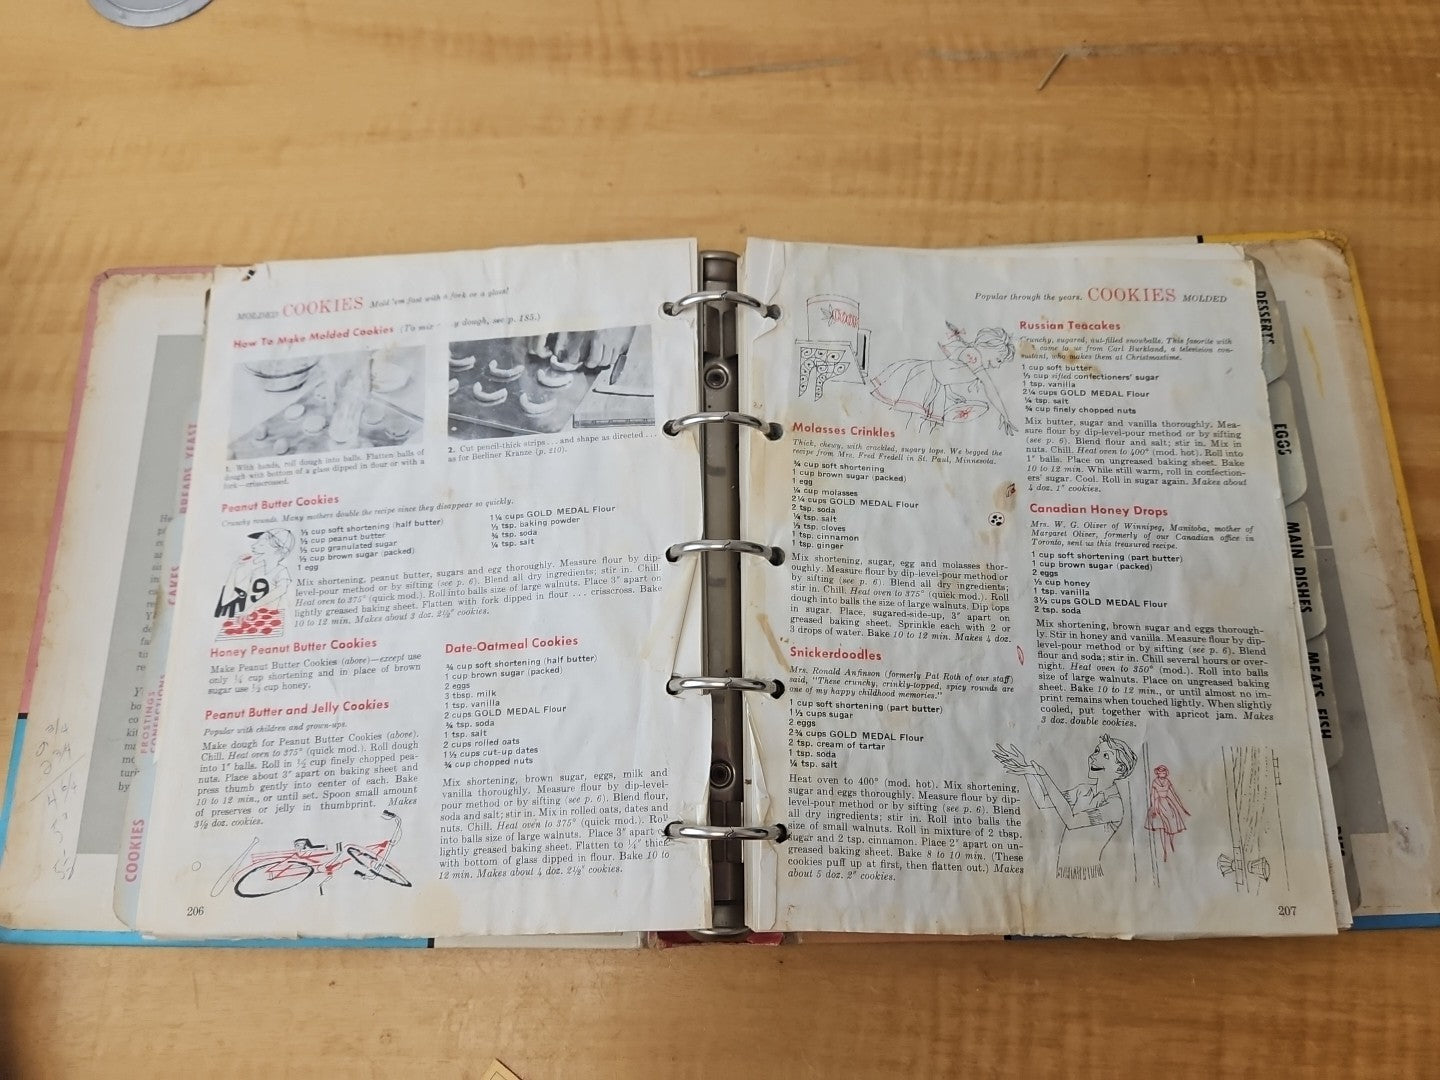 MOLDED COOKIES Mold 'em fast with a fork or a glass!
How To Make Molded Cookies (To mix y dough, see p. 185.)
1. With hands, roll dough into balls. Flatten balls of
dough with bottom of a glass dipped in flour or with a
fork—crisscrossed.
2. Cut pencil-thick strips . . . and shape as directed . . .
as for Berliner Kranze (p. 210).
Peanut Butter Cookies
Crunchy rounds. Many mothers double the recipe since they disappear so quickly.
½ cup soft shortening (half butter)
½ cup peanut butter
½ cup granulated sugar
½ cup brown sugar (packed)
1 egg
1¼ cups GOLD MEDAL Flour
½ tsp. baking powder
¾ tsp. soda
¼ tsp. salt
Mix shortening, peanut butter, sugars and egg thoroughly. Measure flour by dip-
level-pour method or by sifting (see p. 6). Blend all dry ingredients; stir in. Chill.
Heat oven to 375° (quick mod.). Roll into balls size of large walnuts. Place 3" apart on
lightly greased baking sheet. Flatten with fork dipped in flour . . . crisscross. Bake
10 to 12 min. Makes about 3 doz. 2½" cookies.
Honey Peanut Butter Cookies
Make Peanut Butter Cookies (above)—except use
only ¼ cup shortening and in place of brown
sugar use ½ cup honey.
Peanut Butter and Jelly Cookies
Popular with children and grown-ups.
Make dough for Peanut Butter Cookies (above).
Chill. Heat oven to 375° (quick mod.). Roll dough
into 1" balls. Roll in ½ cup finely chopped pea-
nuts. Place about 3" apart on baking sheet and
press thumb gently into center of each. Bake
10 to 12 min., or until set. Spoon small amount
of preserves or jelly in thumbprint. Makes
3½ doz. cookies.
Date-Oatmeal Cookies
¾ cup soft shortening (half butter)
1 cup brown sugar (packed)
2 eggs
3 tbsp. milk
1 tsp. vanilla
2 cups GOLD MEDAL Flour
¾ tsp. soda
1 tsp. salt
2 cups rolled oats
1½ cups cut-up dates
¾ cup chopped nuts
Mix shortening, brown sugar, eggs, milk and
vanilla thoroughly. Measure flour by dip-level-
pour method or by sifting (see p. 6). Blend flour,
soda and salt; stir in. Mix in rolled oats, dates and
nuts. Chill. Heat oven to 375° (quick mod.). Roll
into balls size of large walnuts. Place 3" apart o
lightly greased baking sheet. Flatten to ¼" thick
with bottom of glass dipped in flour. Bake 10 to
12 min. Makes about 4 doz. 2½" cookies.
206
Popular through the years. COOKIES MOLDED
Molasses Crinkles
Thick, chewy, with crackled, sugary tops. We begged the
recipe from Mrs. Fred Fredell in St. Paul, Minnesota.
¾ cup soft shortening
1 cup brown sugar (packed)
1 egg
¼ cup molasses
2¼ cups GOLD MEDAL Flour
2 tsp. soda
¼ tsp. salt
½ tsp. cloves
1 tsp. cinnamon
1 tsp. ginger
Mix shortening, sugar, egg and molasses thor-
oughly. Measure flour by dip-level-pour method or
by sifting (see p. 6). Blend all dry ingredients;
stir in. Chill. Heat oven to 375° (quick mod.). Roll
dough into balls the size of large walnuts. Dip tops
in sugar. Place, sugared-side-up, 3" apart on
greased baking sheet. Sprinkle each with 2 or
3 drops of water. Bake 10 to 12 min. Makes 4 doz.
Snickerdoodles
Mrs. Ronald Anfinson (formerly Pat Roth of our staff)
said, "These crunchy, crinkly-topped, spicy rounds are
one of my happy childhood memories."
1 cup soft shortening (part butter)
1½ cups sugar
2 eggs
2¾ cups GOLD MEDAL Flour
2 tsp. cream of tartar
1 tsp. soda
¼ tsp. salt
Heat oven to 400° (mod. hot). Mix shortening,
sugar and eggs thoroughly. Measure flour by dip-
level-pour method or by sifting (see p. 6). Blend
all dry ingredients; stir in. Roll into balls the
size of small walnuts. Roll in mixture of 2 tbsp.
sugar and 2 tsp. cinnamon. Place 2" apart on un-
greased baking sheet. Bake 8 to 10 min. (These
cookies puff up at first, then flatten out.) Makes
about 5 doz. 2" cookies.
Russian Teacakes
Crunchy, sugared, nut-filled snowballs. This favorite with
came to us from Carl Burkland, a television con-
sultant, who makes them at Christmastime.
1 cup soft butter
½ cup sifted confectioners' sugar
1 tsp. vanilla
2¼ cups GOLD MEDAL Flour
¼ tsp. salt
¾ cup finely chopped nuts
Mix butter, sugar and vanilla thoroughly. Mea-
sure flour by dip-level-pour method or by sifting
(see p. 6). Blend flour and salt; stir in. Mix in
nuts. Chill. Heat oven to 400° (mod. hot). Roll into
1" balls. Place on ungreased baking sheet. Bake
10 to 12 min. While still warm, roll in confection-
ers' sugar. Cool. Roll in sugar again. Makes about
4 doz. 1" cookies.
Canadian Honey Drops
Mrs. W. G. Oliver of Winnipeg, Manitoba, mother of
Margaret Oliver, formerly of our Canadian office in
Toronto, sent us this treasured recipe.
1 cup soft shortening (part butter)
1 cup brown sugar (packed)
2 eggs
½ cup honey
1 tsp. vanilla
3½ cups GOLD MEDAL Flour
2 tsp. soda
Mix shortening, brown sugar and eggs thorough-
ly. Stir in honey and vanilla. Measure flour by dip-
level-pour method or by sifting (see p. 6). Blend
flour and soda; stir in. Chill several hours or over-
night. Heat oven to 350° (mod.). Roll into balls
size of large walnuts. Place on ungreased baking
sheet. Bake 10 to 12 min., or until almost no im-
print remains when touched lightly. When slightly
cooled, put together with apricot jam. Makes
3 doz. double cookies.
207
BREADS YEAST
CAKES
FROSTINGS
CONFECTIONS
COOKIES
DESSERTS
EGGS
MAIN DISHES
MEATS FISH